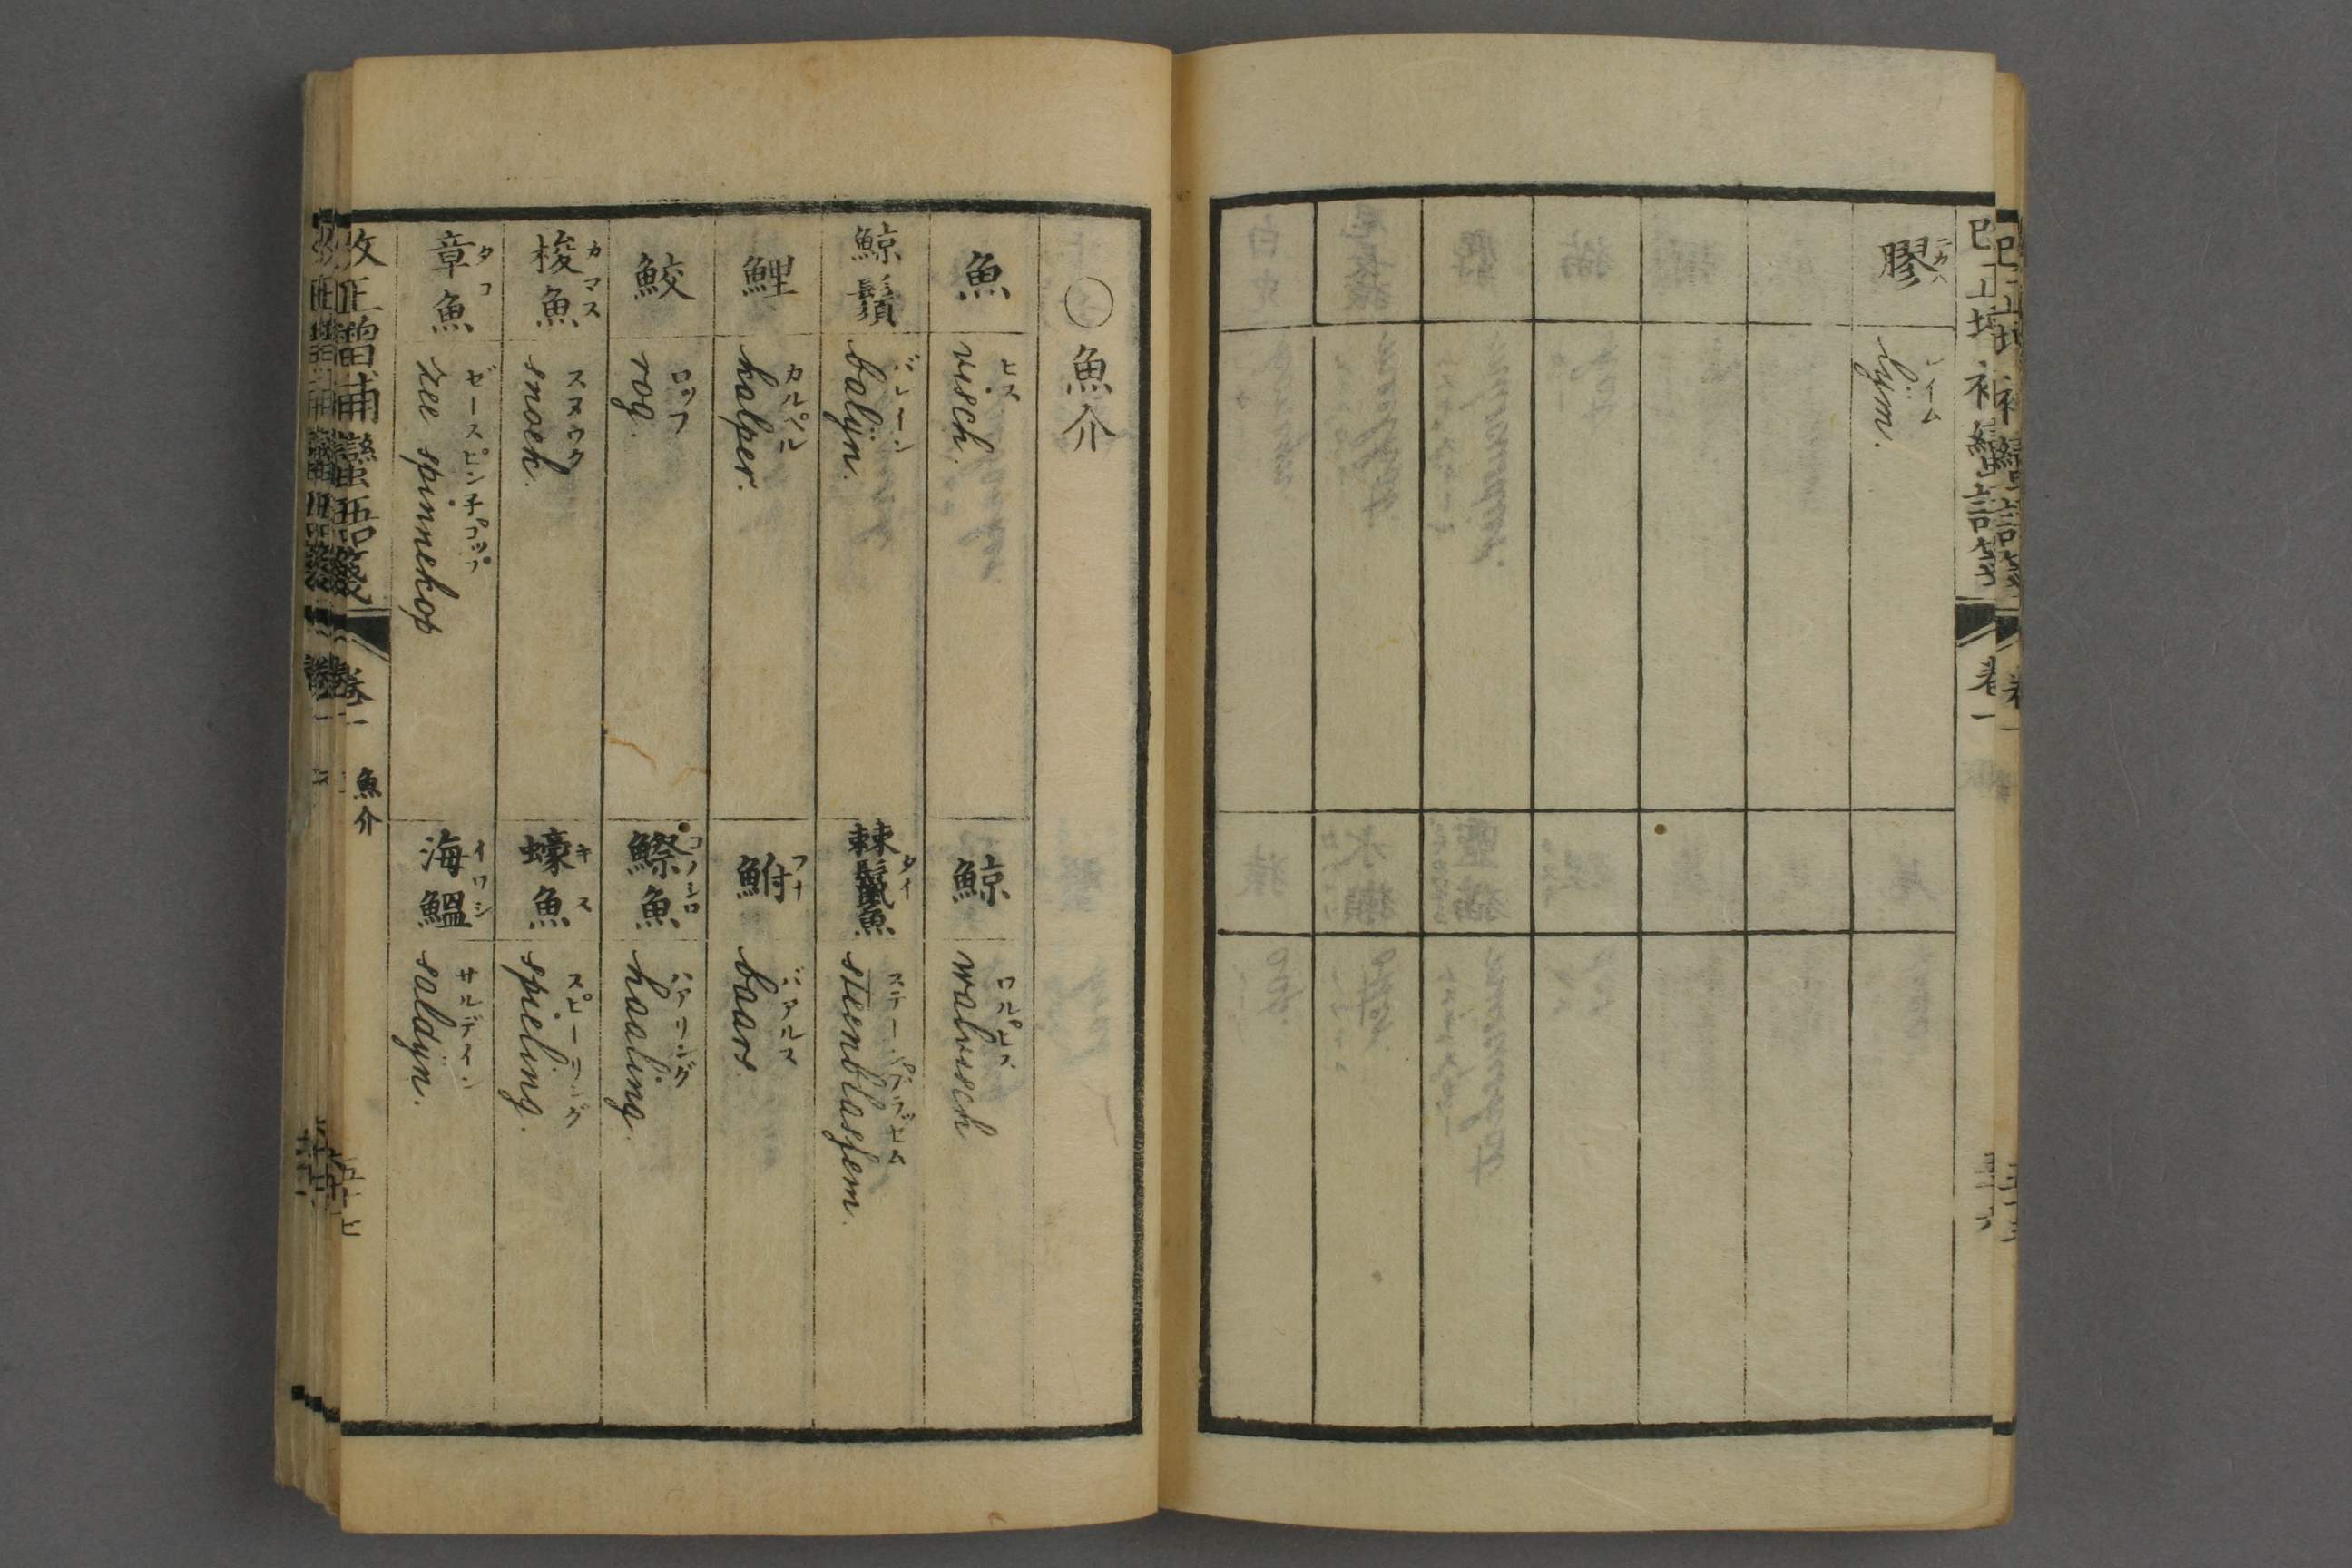 膠 ニカハ
lÿm. レイム
○魚介
魚
visch. ヒス
鯨
walvisch ワルヒス
鯨鬚
balÿn. バレーン
棘鬣魚 タイ
steenblasfem. ステーンブラヅセム
鯉
kalper. カルペル
鮒 フナ
baars. バアルス
鮫
rog. ロッフ
鰶魚 コノシロ
haaling. ハアリング
梭魚 カマス
snoek. スヌウク
蠔魚 キス
spieling. スピーリング
章魚 タコ
zee spinnekop ゼースピン子コップ
海鰮 イワシ
saldÿn. サルデイン
改正増補蠻語箋 卷一 魚介 五十七